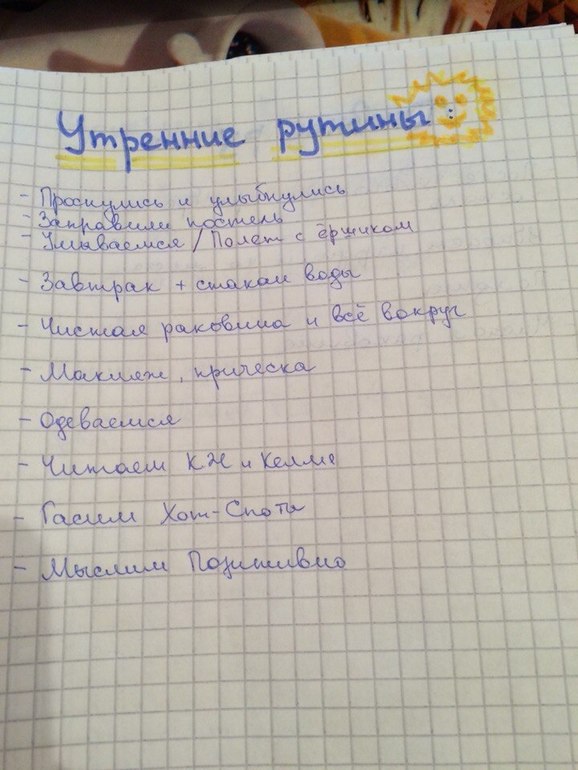 Утренние рутины
- Проснулись и улыбнулись
- Заправили постель
- Умываемся / Полет с ёршиком
- Завтрак + стакан воды
- Чистая раковина и всё вокруг
- Макияж, прическа
- Одеваемся
- Читаем КН и Келли
- Гасим Хот-Споты
- Мыслим Позитивно